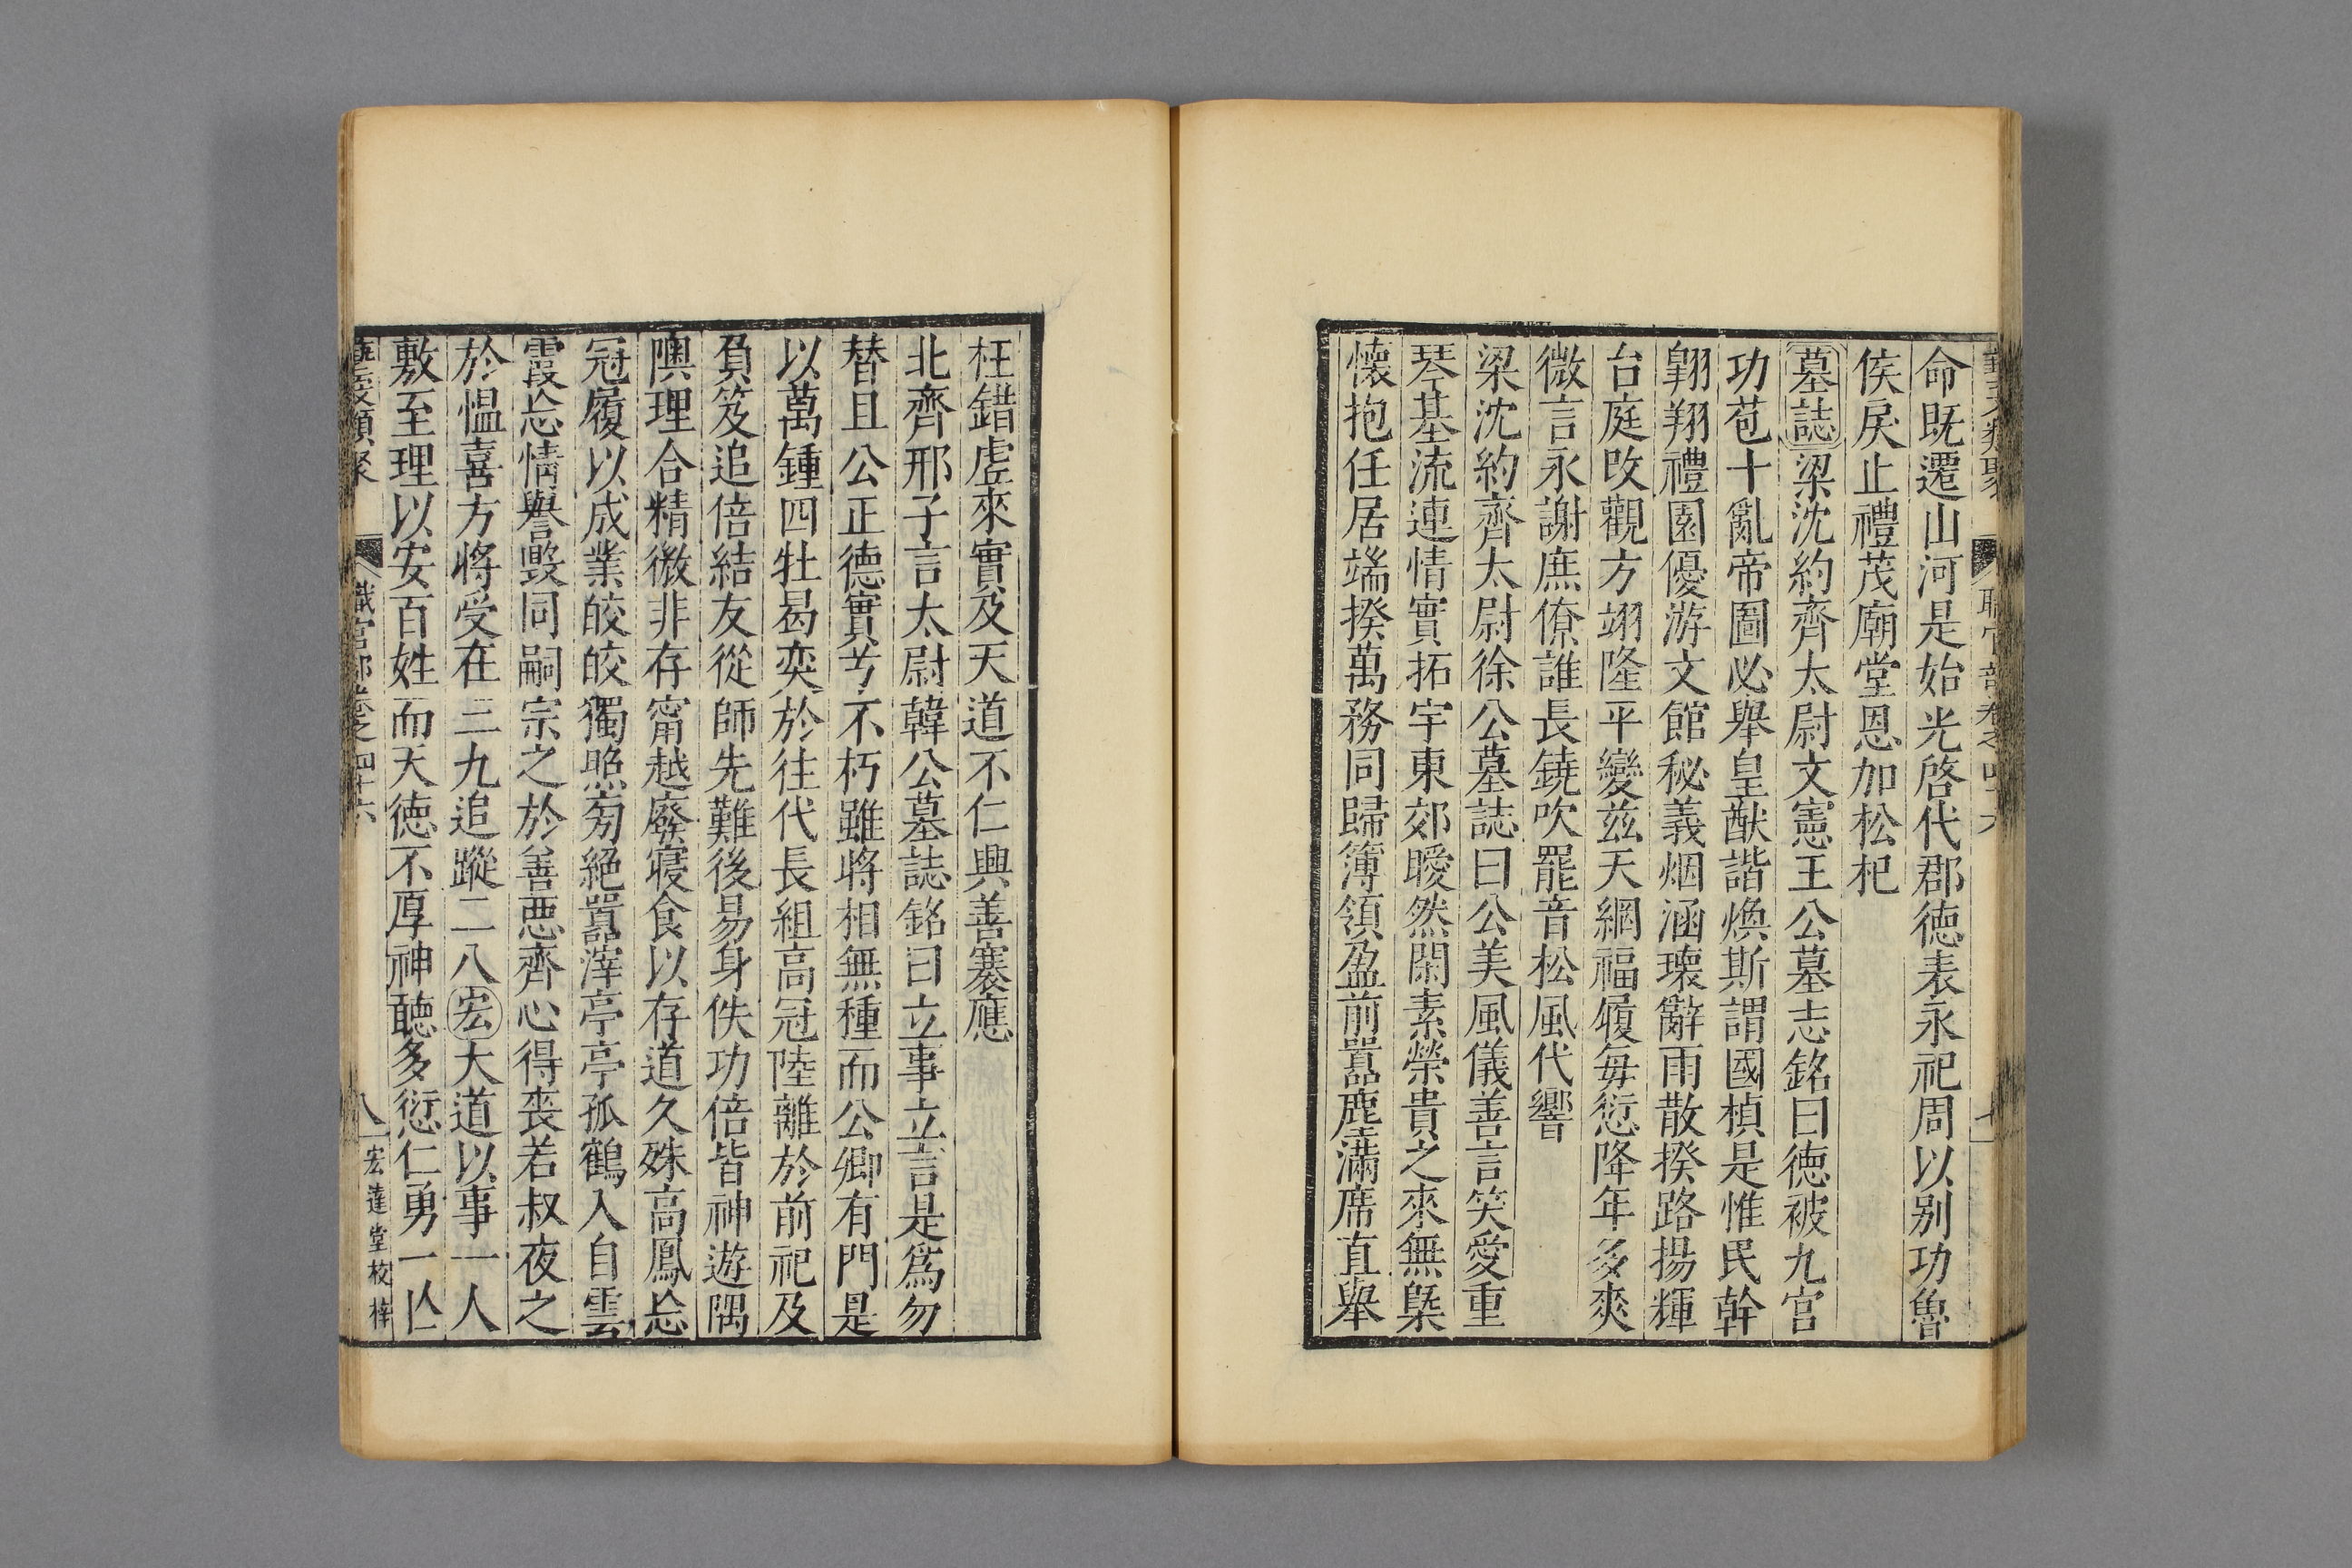 藝文類聚 職官部卷之四十六 七
命旣遷山河是始光啓代郡德表永祀周以別功魯
侯戾止禮茂廟堂恩加松杞
墓誌梁沈約齊太尉文憲王公墓志銘曰德被九宮
功苞十亂帝圖必舉皇猷諧煥斯謂國楨是惟民幹
翺翔禮園優游文館秘義烟涵瓌辭雨散揆路揚輝
台庭改觀方翊隆平變茲天網福履每愆降年多爽
微言永謝庶僚誰長鐃吹罷音松風代響
梁沈約齊太尉徐公墓誌曰公美風儀善言笑愛重
琴基流連情實拓宇東郊曖然閑素榮貴之來無槩
懷抱任居端揆萬務同歸簿領盈前囂塵滿席直舉
枉錯虛來實及天道不仁興善褰應
北齊邢子言太尉韓公墓誌銘曰立事立言是爲勿
替且公正德實兮不朽雖將相無種而公卿有門是
以萬鍾四牡曷奕於往代長組高冠陸離於前祀及
負笈追倍結友從師先難後易身佚功倍皆神遊隅
隩理合精微非存甯越廢寢食以存道久殊高鳳忘
冠履以成業皎皎獨照旁絕囂滓亭亭孤鶴入自雲
霞忘情譽毀同嗣宗之於善惡齊心得喪若叔夜之
於慍喜方將受在三九追蹤二八宏大道以事一人
敷至理以安百姓而天德不厚神聽多愆仁勇一亾
藝文類聚 職官部卷之四十六 八 宏達堂校梓